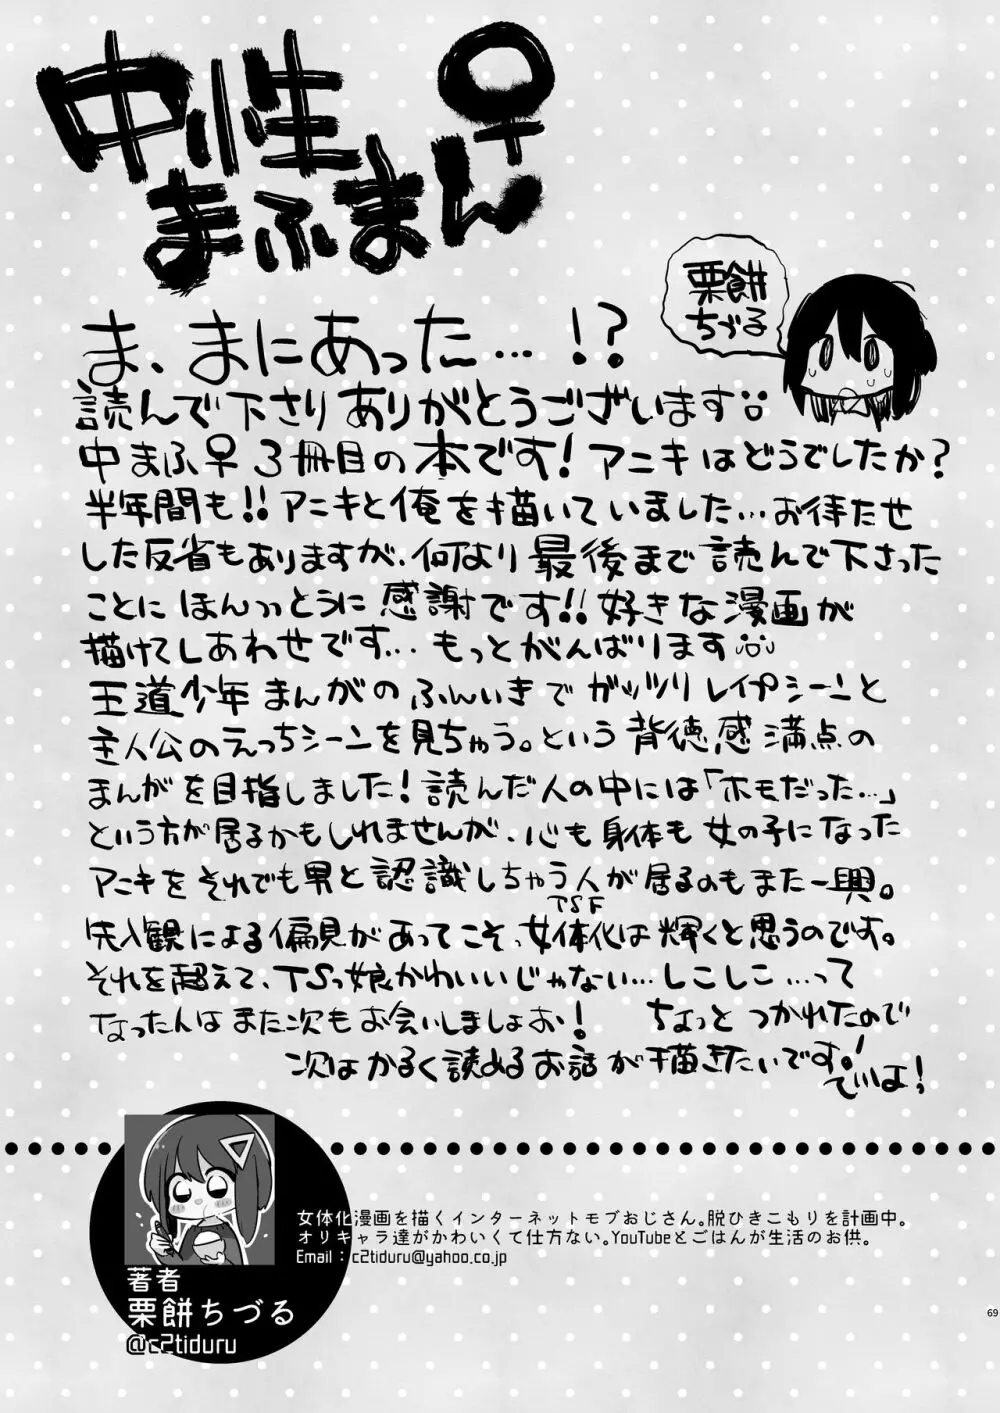 中性
まふまん♀
栗餅
ちづる
ま、まにあった…!?
読んで下さりありがとうございます
中まふ♀3冊目の本です!アニキはどうでしたか?
半年間も!!アニキと俺を描いていました…お待たせ
した反省もありますが、何より最後まで読んで下さった
ことにほんっっとうに感謝です!!好きな漫画が
描けてしあわせです…もっとがんばります
王道少年まんがのふんいきでガッツリレイプシーンと
主人公のえっちシーンを見ちゃう。という背徳感満点の
まんがを目指しました!読んだ人の中には「ホモだった…」
という方が居るかもしれませんが、心も身体も女の子になった
アニキをそれでも男と認識しちゃう人が居るのもまた一興。
先入観による偏見があってこそ、女体化は輝くと思うのです。
TSF
それを超えて、TSっ娘かわいいじゃない…しこしこ…って
なったんはまた次もお会いしましょお!ちょっとつかれたので
次はかるく読めるお話が描きたいです!
でいよ!
女体化漫画を描くインターネットモブおじさん。脱ひきこもりを計画中。
オリキャラ達がかわいくて仕方ない。YouTubeとごはんが生活のお供。
Email:c2tiduru@yahoo.co.jp
著者
栗餅ちづる
@c2tiduru
69